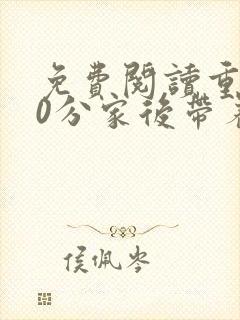 免費閱讀重
0分家後帶着
侯佩岑